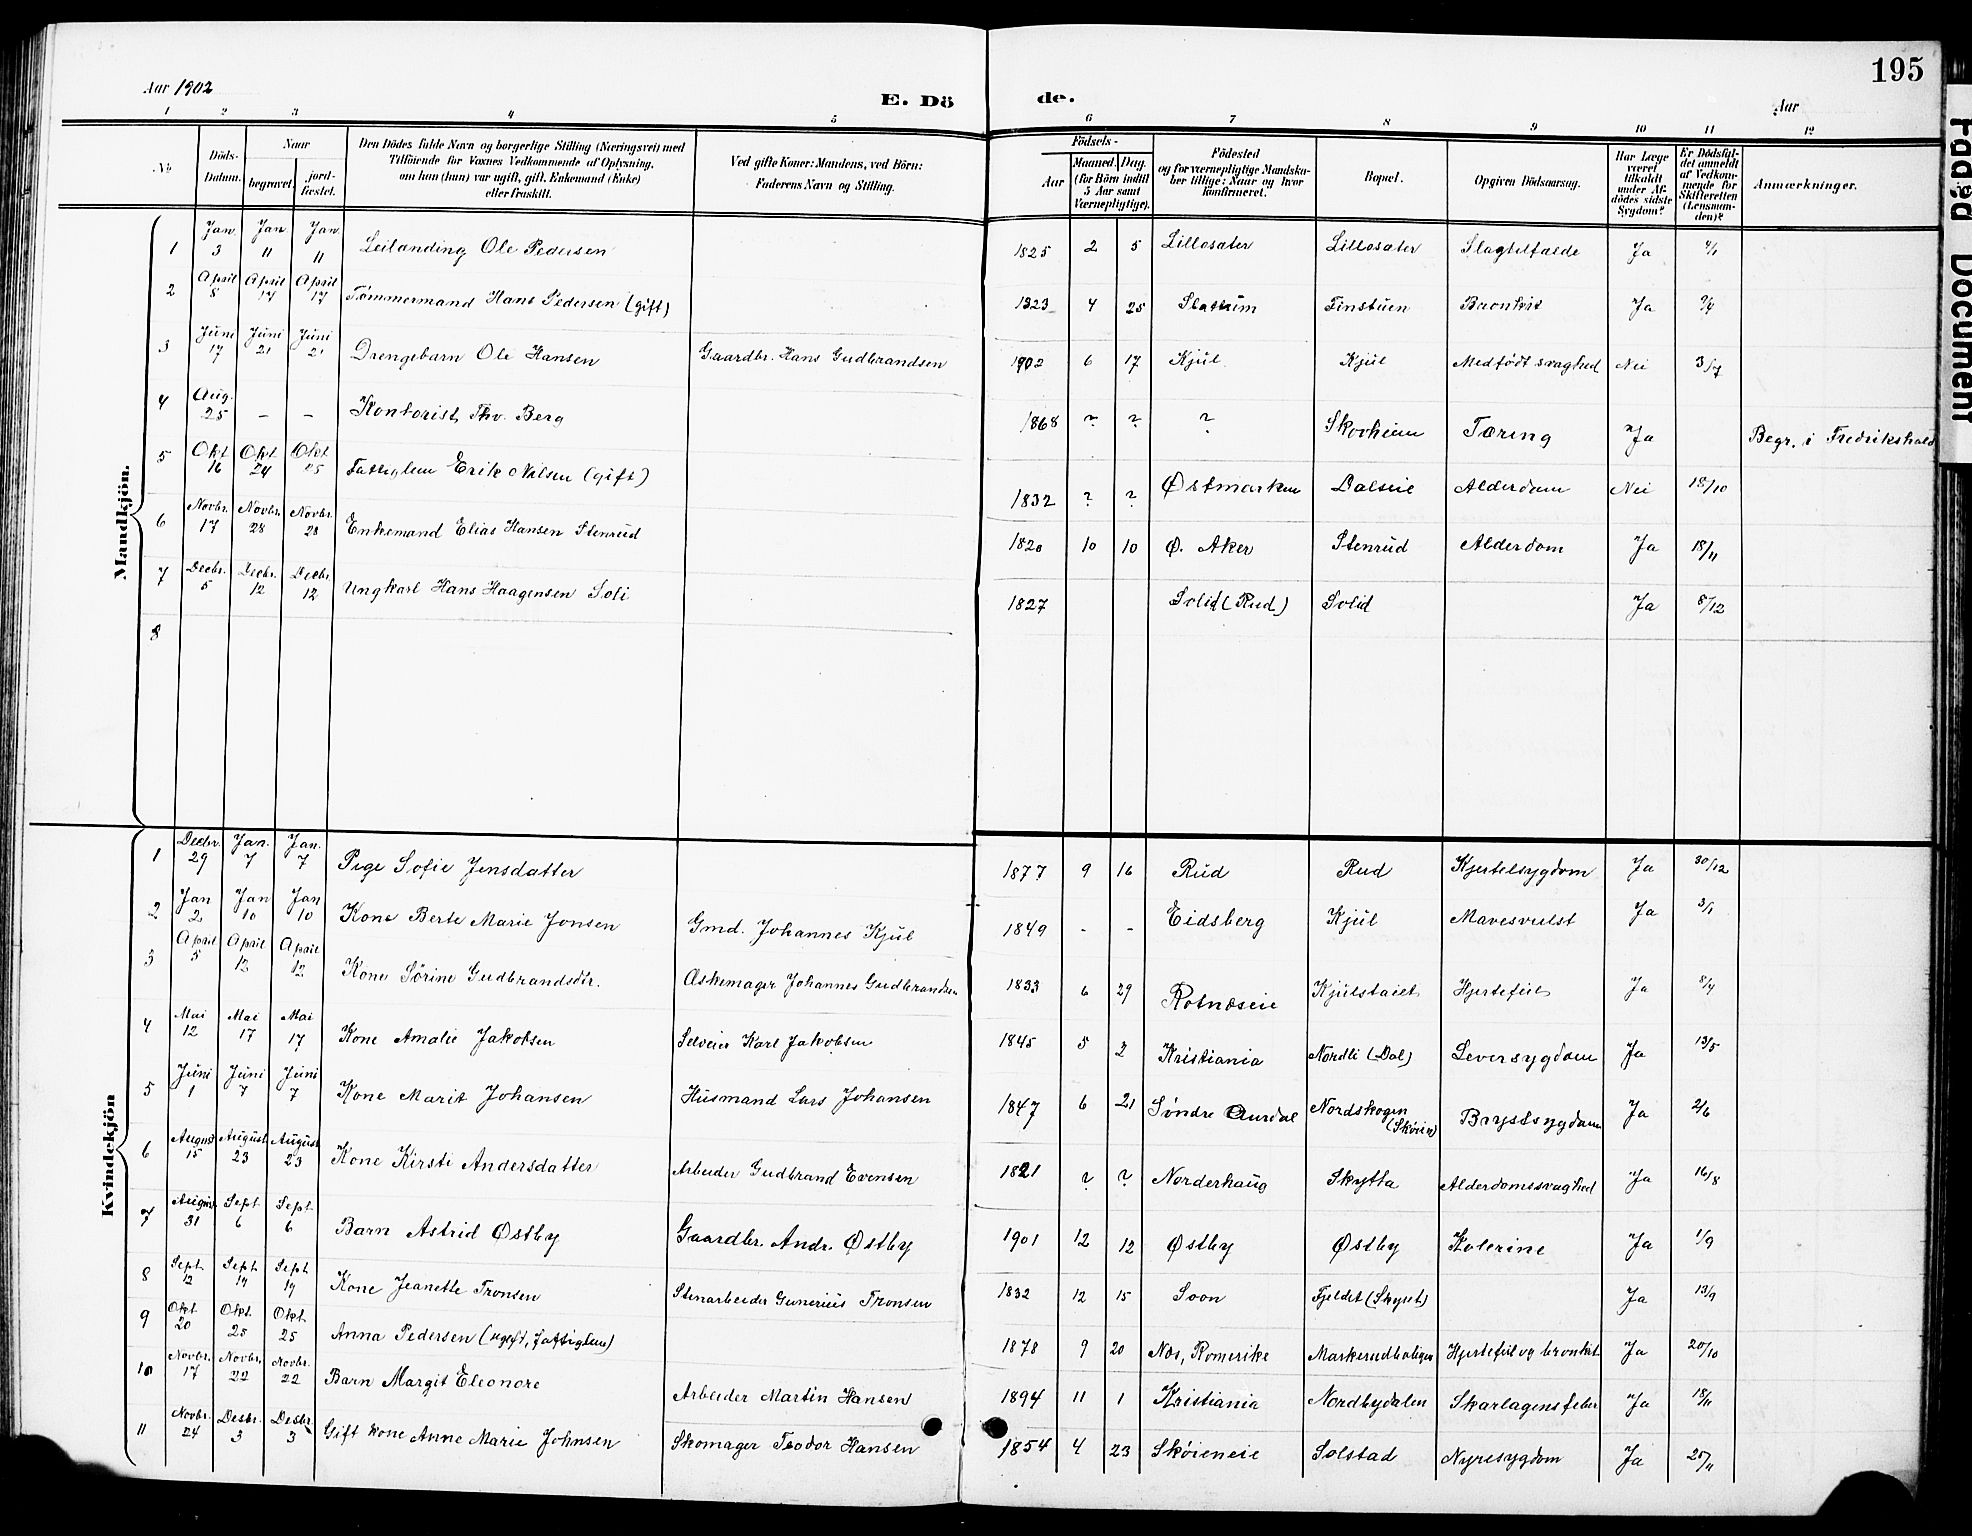 195
Aar 1902
E. Dö de.
Aar
1 2 3 4 5 6 7 8 9 10 11 12
No
Döds-Datum.
Naar begravet. jord-fæstet.
Den Dödes fulde Navn og borgerlige Stilling (Næringsvei) med Tilföiende for Voxnes Vedkommende af Oplysning, om han (hun) var ugift, gift, Enkemand (Enke) eller fraskilt.
Ved gifte Koner: Mandens, ved Börn: Faderens Navn og Stilling.
Födsels- Aar Maaned. Dag. (for Börn indtil 5 Aar samt Værnepligtige).
Födested og for værnepligtige Mandskaber tillige: Naar og hvor konfirmeret.
Bopæl.
Opgiven Dödsaarsag.
Har Læge været tilkaldt under Afdödes sidste Sygdom?
Er Dödsfaldet anmeldt af Vedkommende for Skifteretten (Lensmanden)?
Anmærkninger.
Mandkjön.
1 Jan. 3 Jan 11 Jan. 11 Leilænding Ole Pedersen 1825 2 5 Lillosæter Lillosæter Slagtilfælde Ja 4/1
2 April 8 April 17 April 17 Tömmermand Hans Pedersen (gift) 1823 4 25 Slattum Finstuen Bronkit Ja 9/4
3 Juni 17 Juni 21 Juni 21 Drengebarn Ole Hansen Gaardbr. Hans Gudbrandsen 1902 6 17 Kjul Kjul Medfödt svaghed Nei 3/7
4 Aug. 25 – – Kontorist Thv. Berg 1868 ? ? ? Skovheim Tæring Ja Begr. i Fredrikshald
5 Okt 16 Okt 24 Okt 25 Fattiglem Erik Nilsen (gift) 1832 ? ? Østmarken Dalseie Alderdom Nei 18/10
6 Novbr. 17 Novbr. 28 Novbr. 28 Enkemand Elias Hansen Stenrud 1820 10 10 Ø. Aker Stenrud Alderdom Ja 18/11
7 Decbr. 5 Decbr. 12 Decbr. 12 Ungkarl Hans Haagensen Soli 1827 Solid (Rud) Solid Ja 8/12
8
Kvindekjön
1 Decbr. 29 Jan. 7 Jan. 7 Pige Sofie Jensdatter 1877 9 16 Rud Rud Kjertelsygdom Ja 30/12
2 Jan 2 Jan 10 Jan 10 Kone Berte Marie Jonsen Gmd. Johannes Kjul 1849 - - Eidsberg Kjul Mavesvulst Ja 3/1
3 April 5 April 12 April 12 Kone Sörine Gudbrandsdtr. Æskemager Johannes Gudbrandsen 1833 6 29 Rotnæseie Kjulstaiet Hjertefeil Ja 8/4
4 Mai 12 Mai 17 Mai 17 Kone Amalie Jakobsen Selveier Karl Jakobsen 1845 5 2 Kristiania Nordli (Dal) Leversygdom Ja 13/5
5 Juni 1 Juni 7 Juni 7 Kone Marit Johansen Husmand Lars Johansen 1847 6 21 Søndre Aurdal Nordskogen (Skøien) Brystsygdom Ja 2/6
6 August 15 August 23 August 23 Kone Kirsti Andersdatter Arbeider Gudbrand Evensen 1821 ? ? Norderhaug Skytta Alderdomssvaghed Ja 16/8
7 August 31 Sept 6 Sept 6 Barn Astrid Østby Gaardbr. Andr. Østby 1901 12 12 Østby Østby Kolerine Ja 1/9
8 Sept. 12 Sept 19 Sept 19 Kone Jeanette Tronsen Stenarbeider Gunerius Tronsen 1832 12 15 Soon Fjeldet (Skyset) Ja 13/9
9 Okt. 20 Okt. 25 Okt 25 Anna Pedersen (ugift, fattiglem) 1878 9 20 Næs, Romerike Markerudboliger Hjertefeil og bronkit Ja 20/10
10 Novbr. 17 Novbr. 22 Novbr. 22 Barn Margit Eleonore Arbeider Martin Hansen 1894 11 1 Kristiania Nordbydalen Skarlagensfeber Ja 18/11
11 Novbr. 24 Desbr. 3 Desbr. 3 Gift kone Anne Marie Johnsen Skomager Teodor Hansen 1854 4 23 Skøieneie Solstad Nyresygdom Ja 25/11
Faded Document